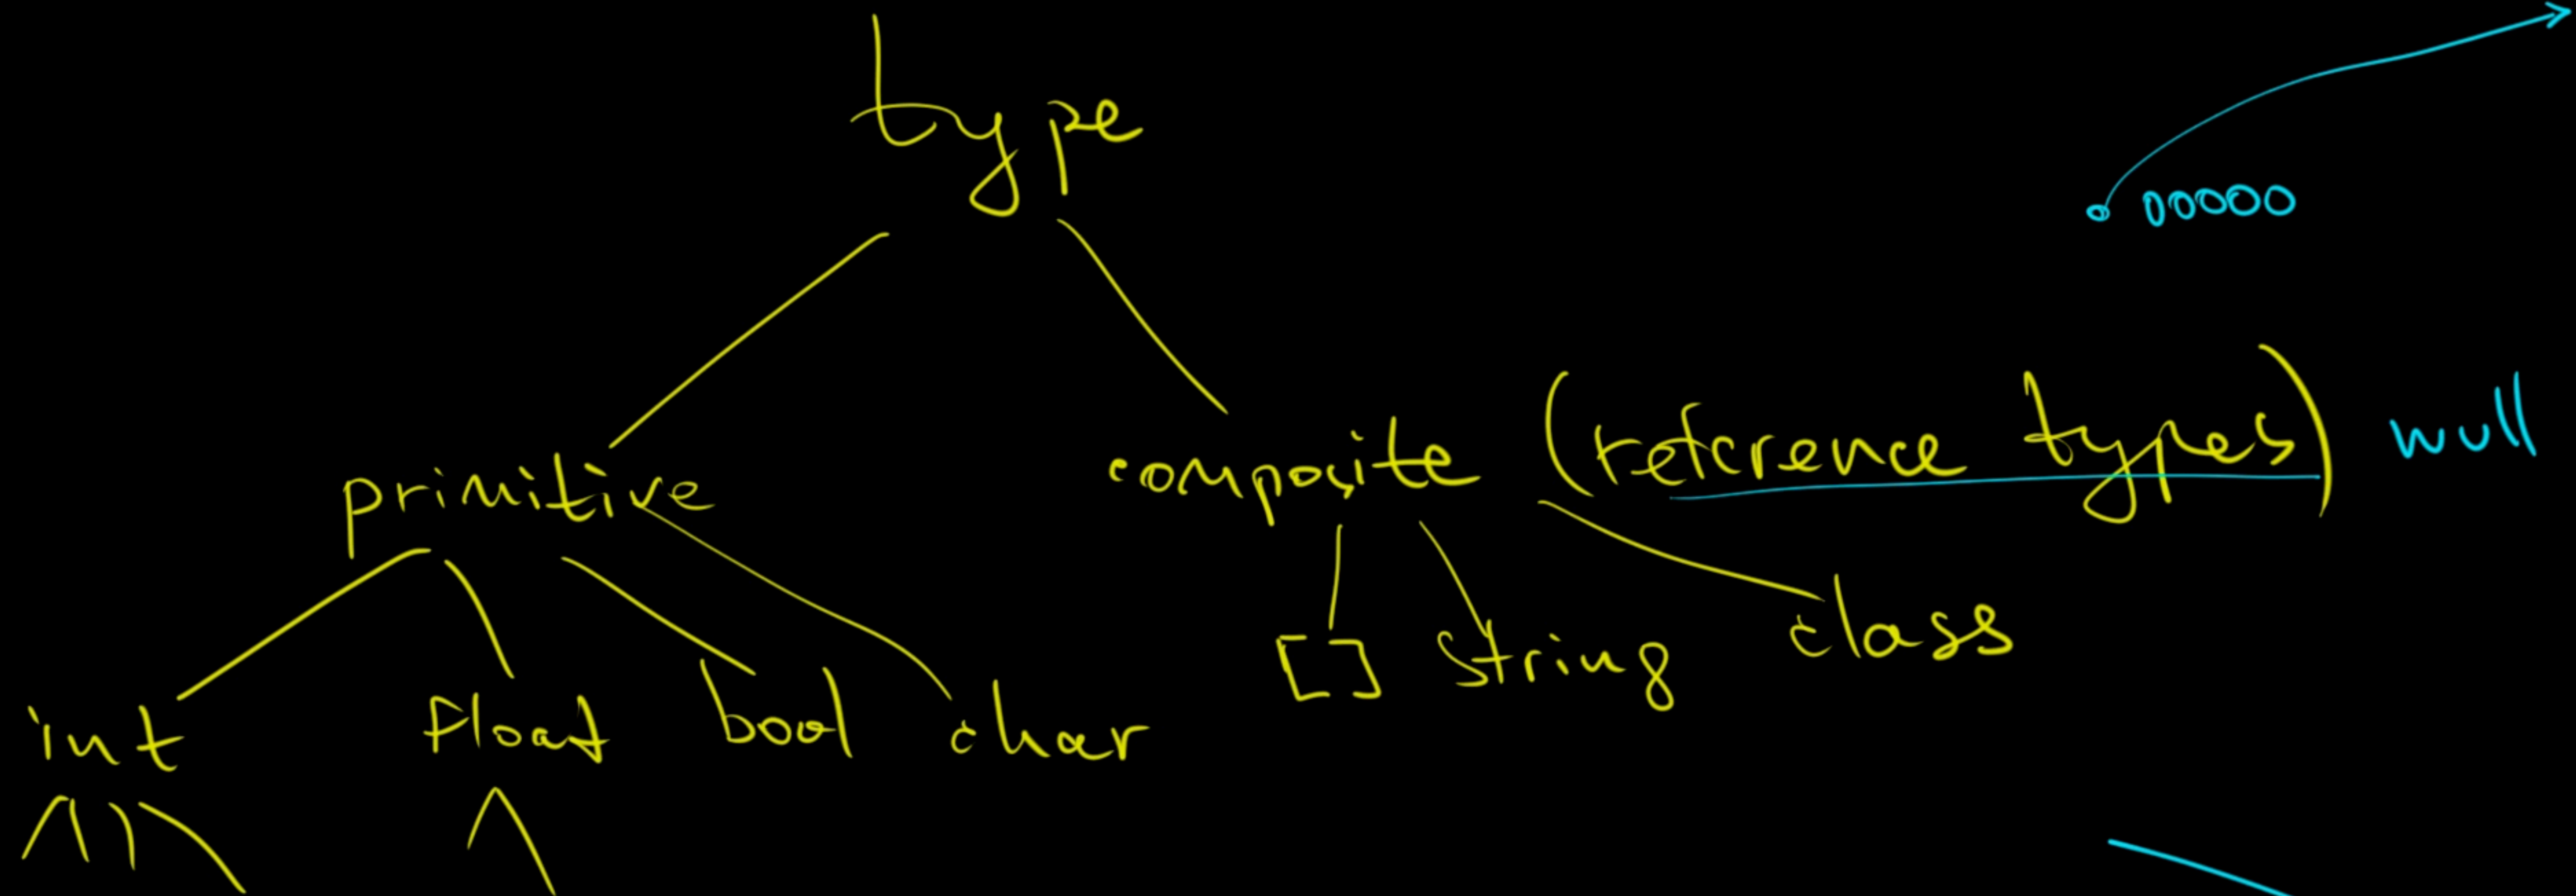 type
00000
primitive composite (reference types) null
int float bool char [] String class